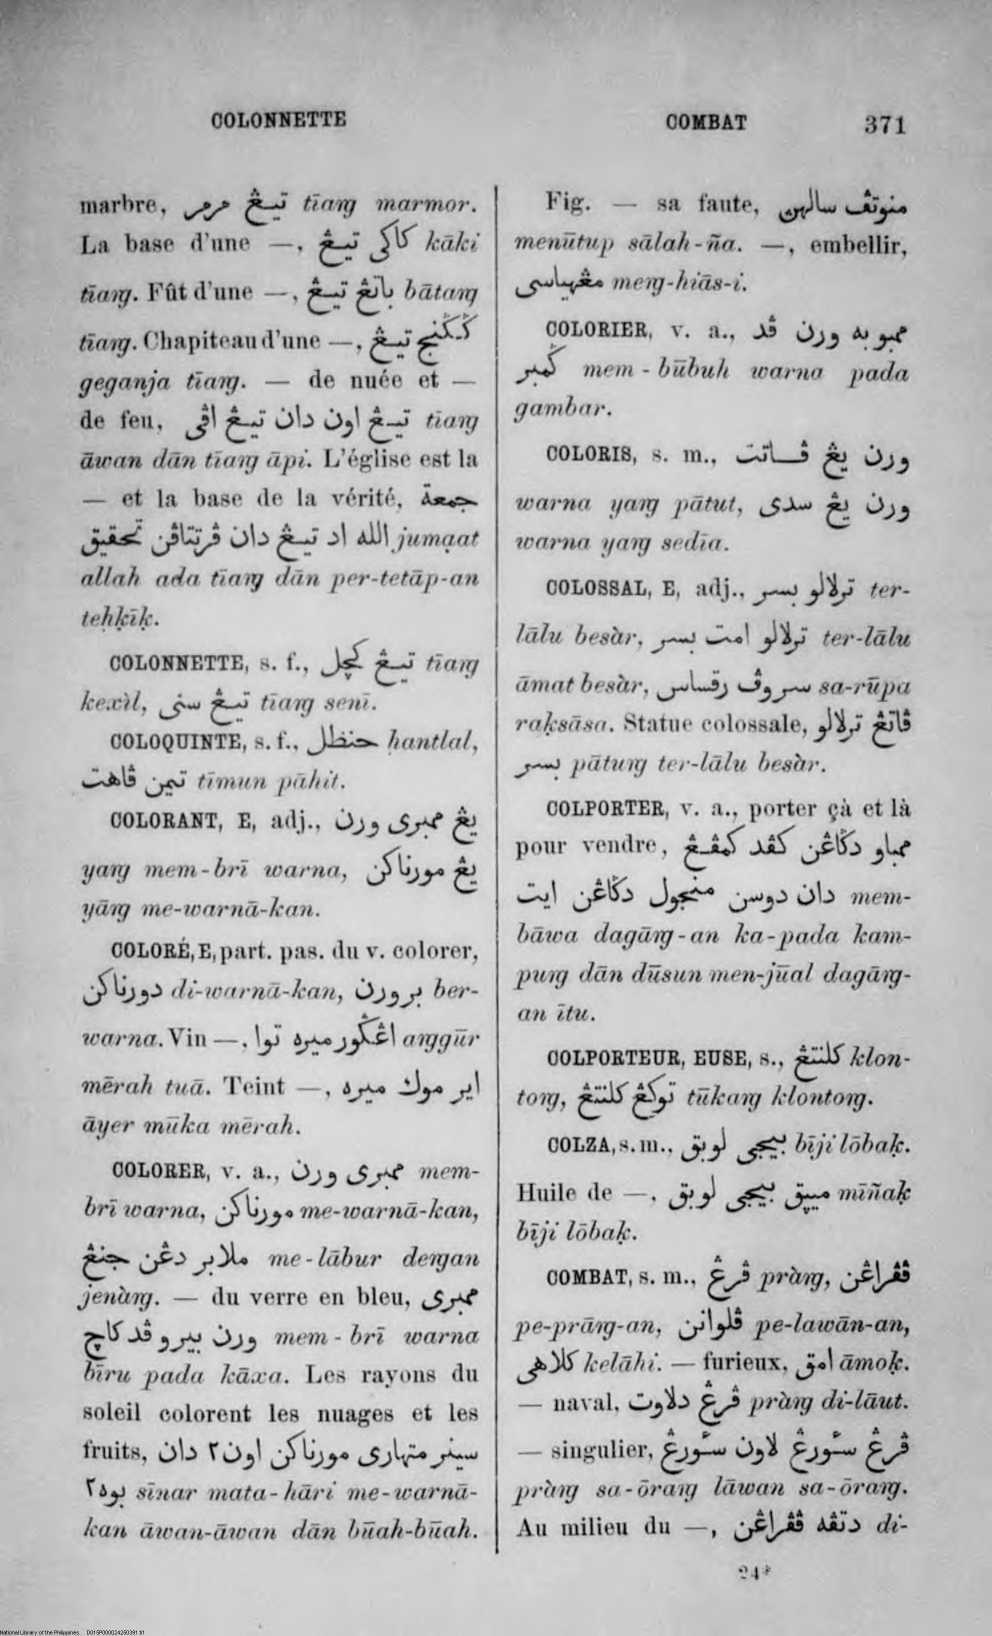 COLONNETTE COMBAT 371
marbre, تيڠ مرمر tīaŋ marmor.
La base d'une —, كاكي تيڠ kāki
tīaŋ. Fût d'une —, باتڠ تيڠ bātaŋ
tīaŋ. Chapiteau d'une —, ݢݢنج تيڠ
geganja tīaŋ. — de nuée et —
de feu, تيڠ اون دان تيڠ اڤي tīaŋ
āwan dān tīaŋ āpi. L'église est la
— et la base de la vérité, جمعة
الله اد تيڠ دان ڤرتتاڤن تحقيق jumạat
allah ada tīaŋ dān per-tetāp-an
teḥḳīḳ.
COLONNETTE, s. f., تيڠ كچل tīaŋ
kexìl, تيڠ سني tīaŋ senī.
COLOQUINTE, s. f., حنظل ḥantlal,
تيمن ڤاهت tīmun pāhit.
COLORANT, E, adj., يڠ ممبري ورن
yaŋ mem-brī warna, يڠ مورناكن
yāŋ me-warnā-kan.
COLORÉ, E, part. pas. du v. colorer,
دورناكن di-warnā-kan, برورن ber-
warna. Vin —, اڠݢور ميره توا aŋgūr
mērah tuā. Teint —, اير موك ميره
āyer mūka mērah.
COLORER, v. a., ممبري ورن mem-
brī warna, مورناكن me-warnā-kan,
ملابر دڠن جنڠ me-lābur deŋan
jenàŋ. — du verre en bleu, ممبري
ورن بيرو ڤد كاچ mem-brī warna
bīru pada kāxa. Les rayons du
soleil colorent les nuages et les
fruits, سينر متهاري مورناكن اون٢ دان
بوه٢ sīnar mata-hāri me-warnā-
kan āwan-āwan dān būah-būah.
Fig. — sa faute, منوتڤ سالهڽ
menūtup sālah-ña. —, embellir,
مڠهياسي meŋ-hiās-i.
COLORIER, v. a., ممبوبه ورن ڤد
ݢمبر mem-būbuh warna pada
gambar.
COLORIS, s. m., ورن يڠ ڤاتت
warna yaŋ pātut, ورن يڠ سدي
warna yaŋ sedīa.
COLOSSAL, E, adj., ترلالو بسر ter-
lālu besàr, ترلالو امت بسر ter-lālu
āmat besàr, سروڤ رقساس sa-rūpa
raḳsāsa. Statue colossale, ڤاتڠ ترلالو
بسر pātuŋ ter-lālu besàr.
COLPORTER, v. a., porter çà et là
pour vendre, ممباو دݢاڠن كڤد كمڤڠ
دان دوسن منجول دݢاڠن ايت mem-
bāwa dagāŋ-an ka-pada kam-
puŋ dān dūsun men-jūal dagāŋ-
an ītu.
COLPORTEUR, EUSE, s., كلنتڠ klon-
toŋ, توكڠ كلنتڠ tūkaŋ klontoŋ.
COLZA, s. m., بيجي لوبق bīji lōbaḳ.
Huile de —, ميڽق بيجي لوبق mīñaḳ
bīji lōbaḳ.
COMBAT, s. m., ڤرڠ pràŋ, ڤڤراڠن
pe-prāŋ-an, ڤلوانن pe-lawān-an,
كلاهي kelāhi. — furieux, امق āmoḳ.
— naval, ڤرڠ دلاوت pràŋ di-lāut.
— singulier, ڤرڠ سئورڠ لاون سئورڠ
pràŋ sa-ōraŋ lāwan sa-ōraŋ.
Au milieu du —, دتڠه ڤڤراڠن di-
24*
National Library of the Philippines